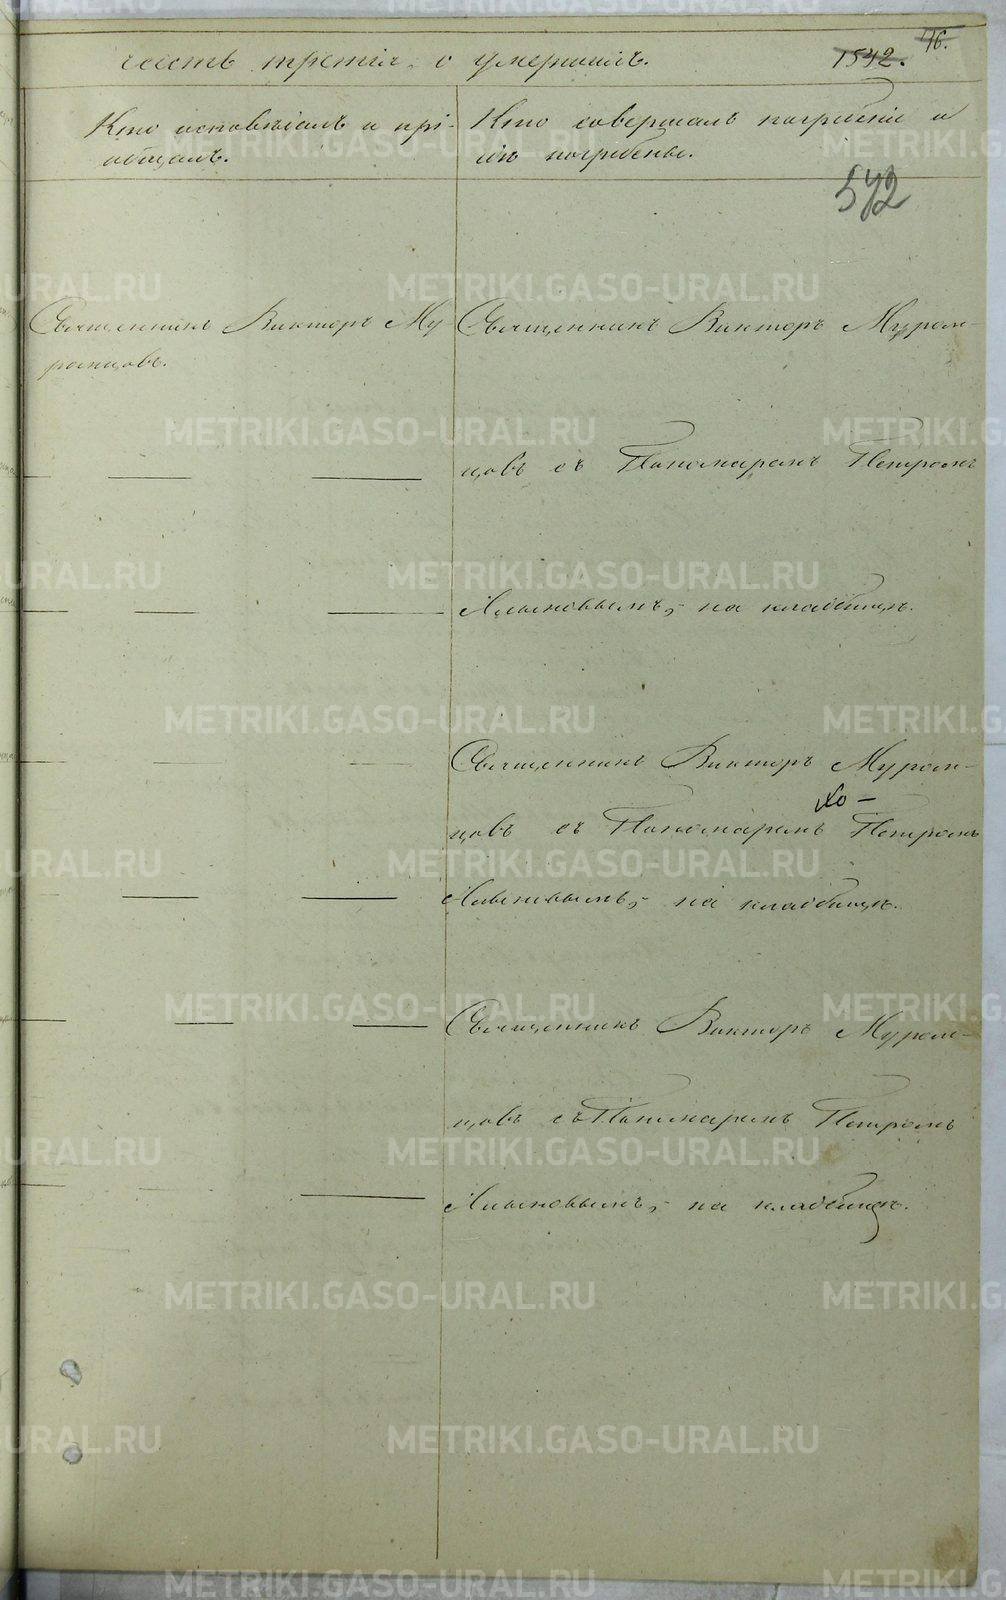 часть третія, о умершихъ.
1542. 46.
Кто исповѣдалъ и прі-
общалъ.
Кто совершалъ погребеніе и
гдѣ погребены.
572
Священникъ Викторъ Му
ромцовъ.
Священникъ Викторъ Муром-
цовъ съ Пономаремъ Петромъ
на кладбищѣ.
Священникъ Викторъ Муром-
цовъ съ Пономаремъ Петромъ
на кладбищѣ.
Священникъ Викторъ Муром-
цовъ съ Пономаремъ Петромъ
на кладбищѣ.
METRIKI.GASO-URAL.RU